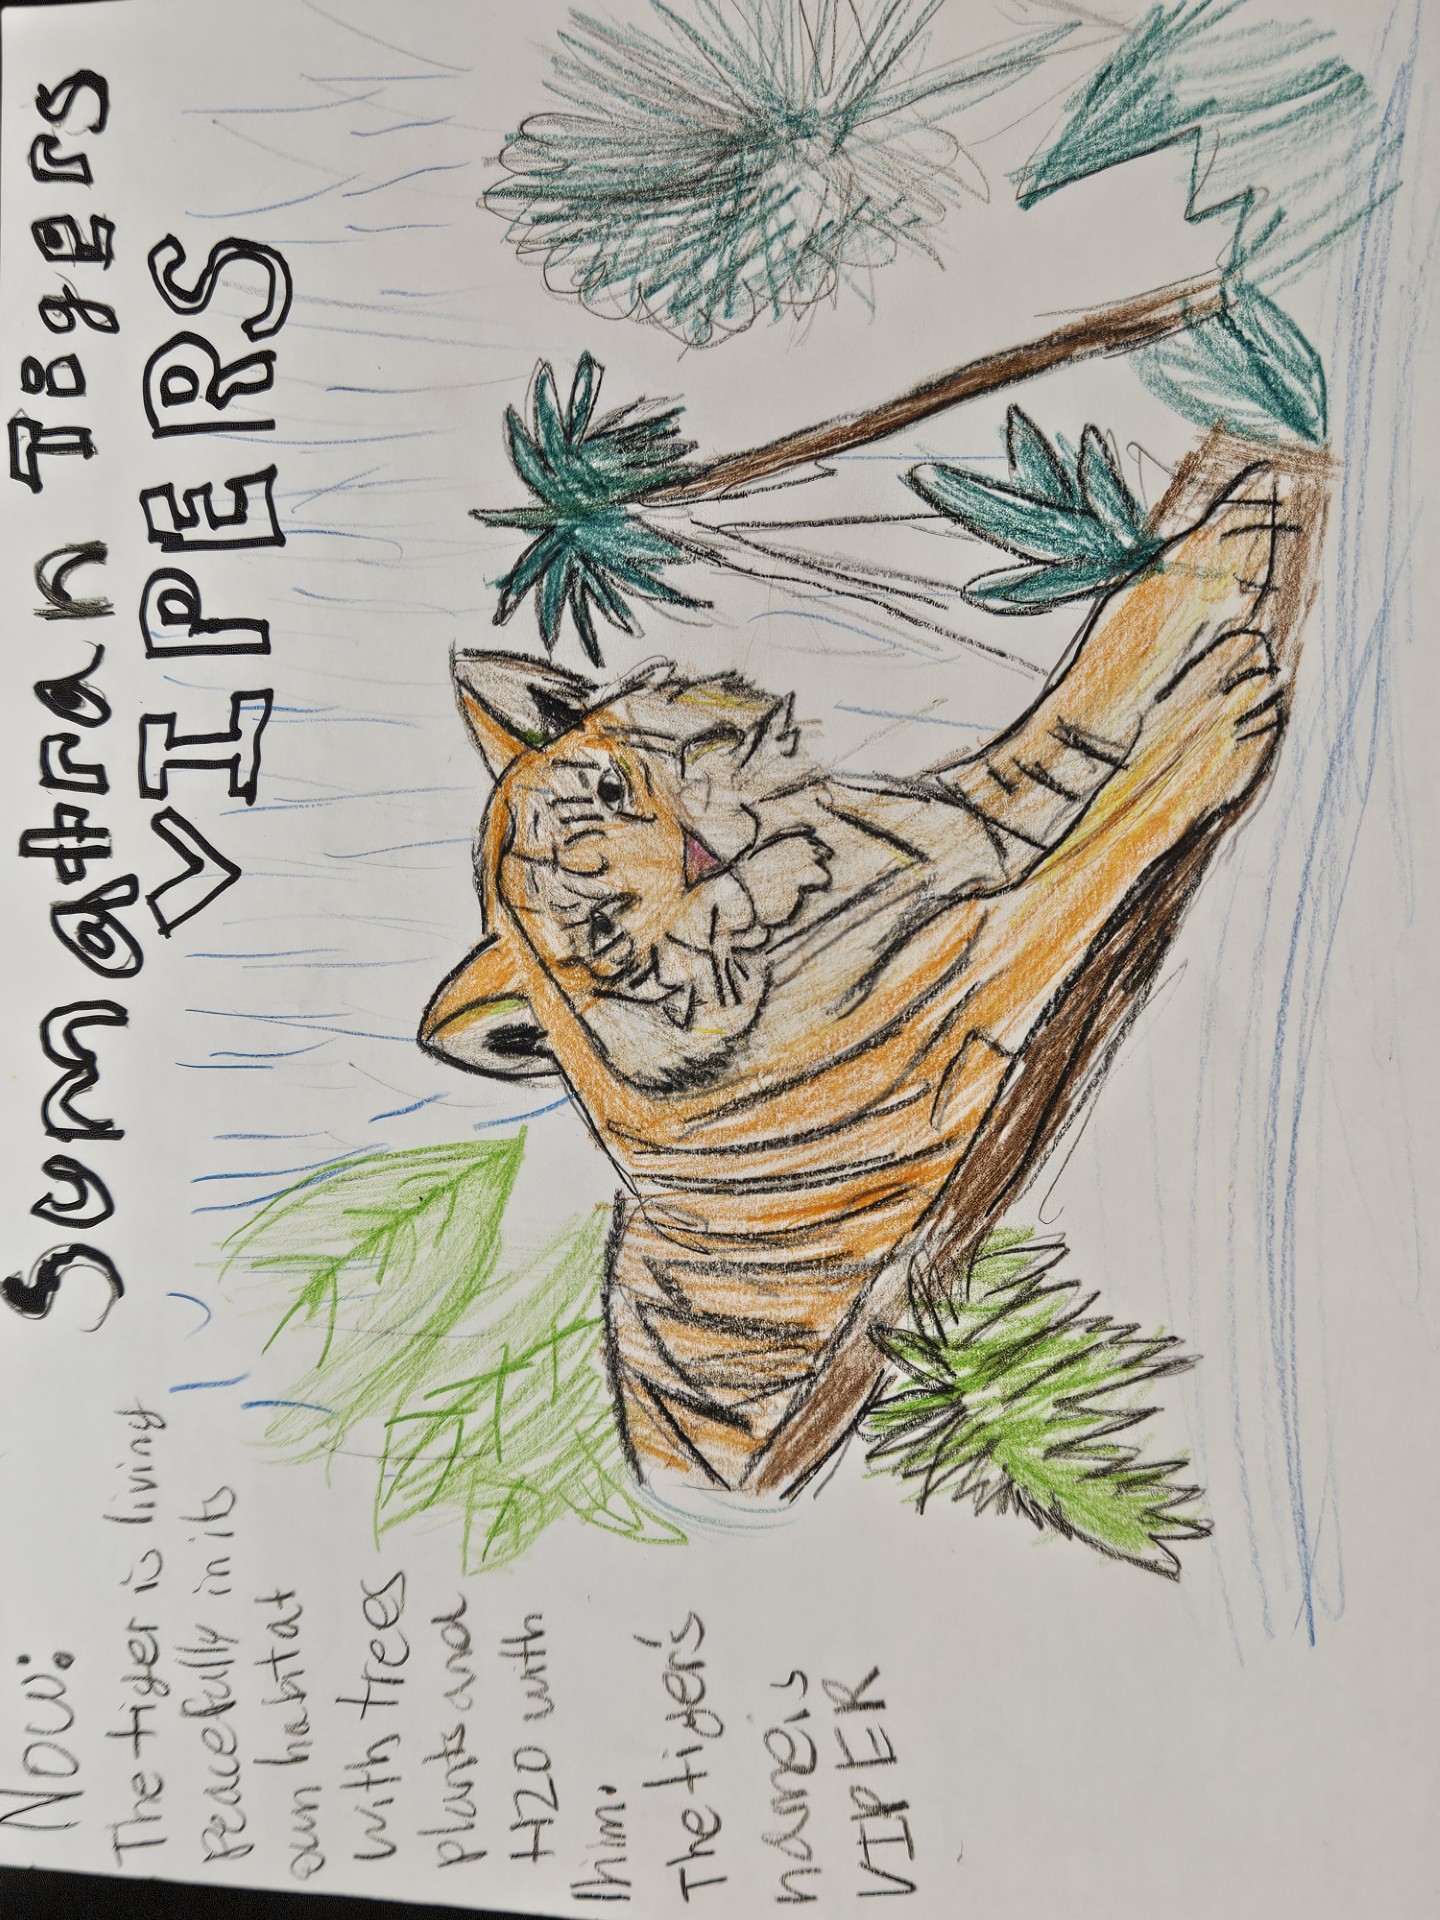 Sumatran Tigers
VIPERS
Now:
The tiger is living
peacefully in its
own habitat
with trees
plants and
H20 with
him.
The tiger's
name is
VIPER